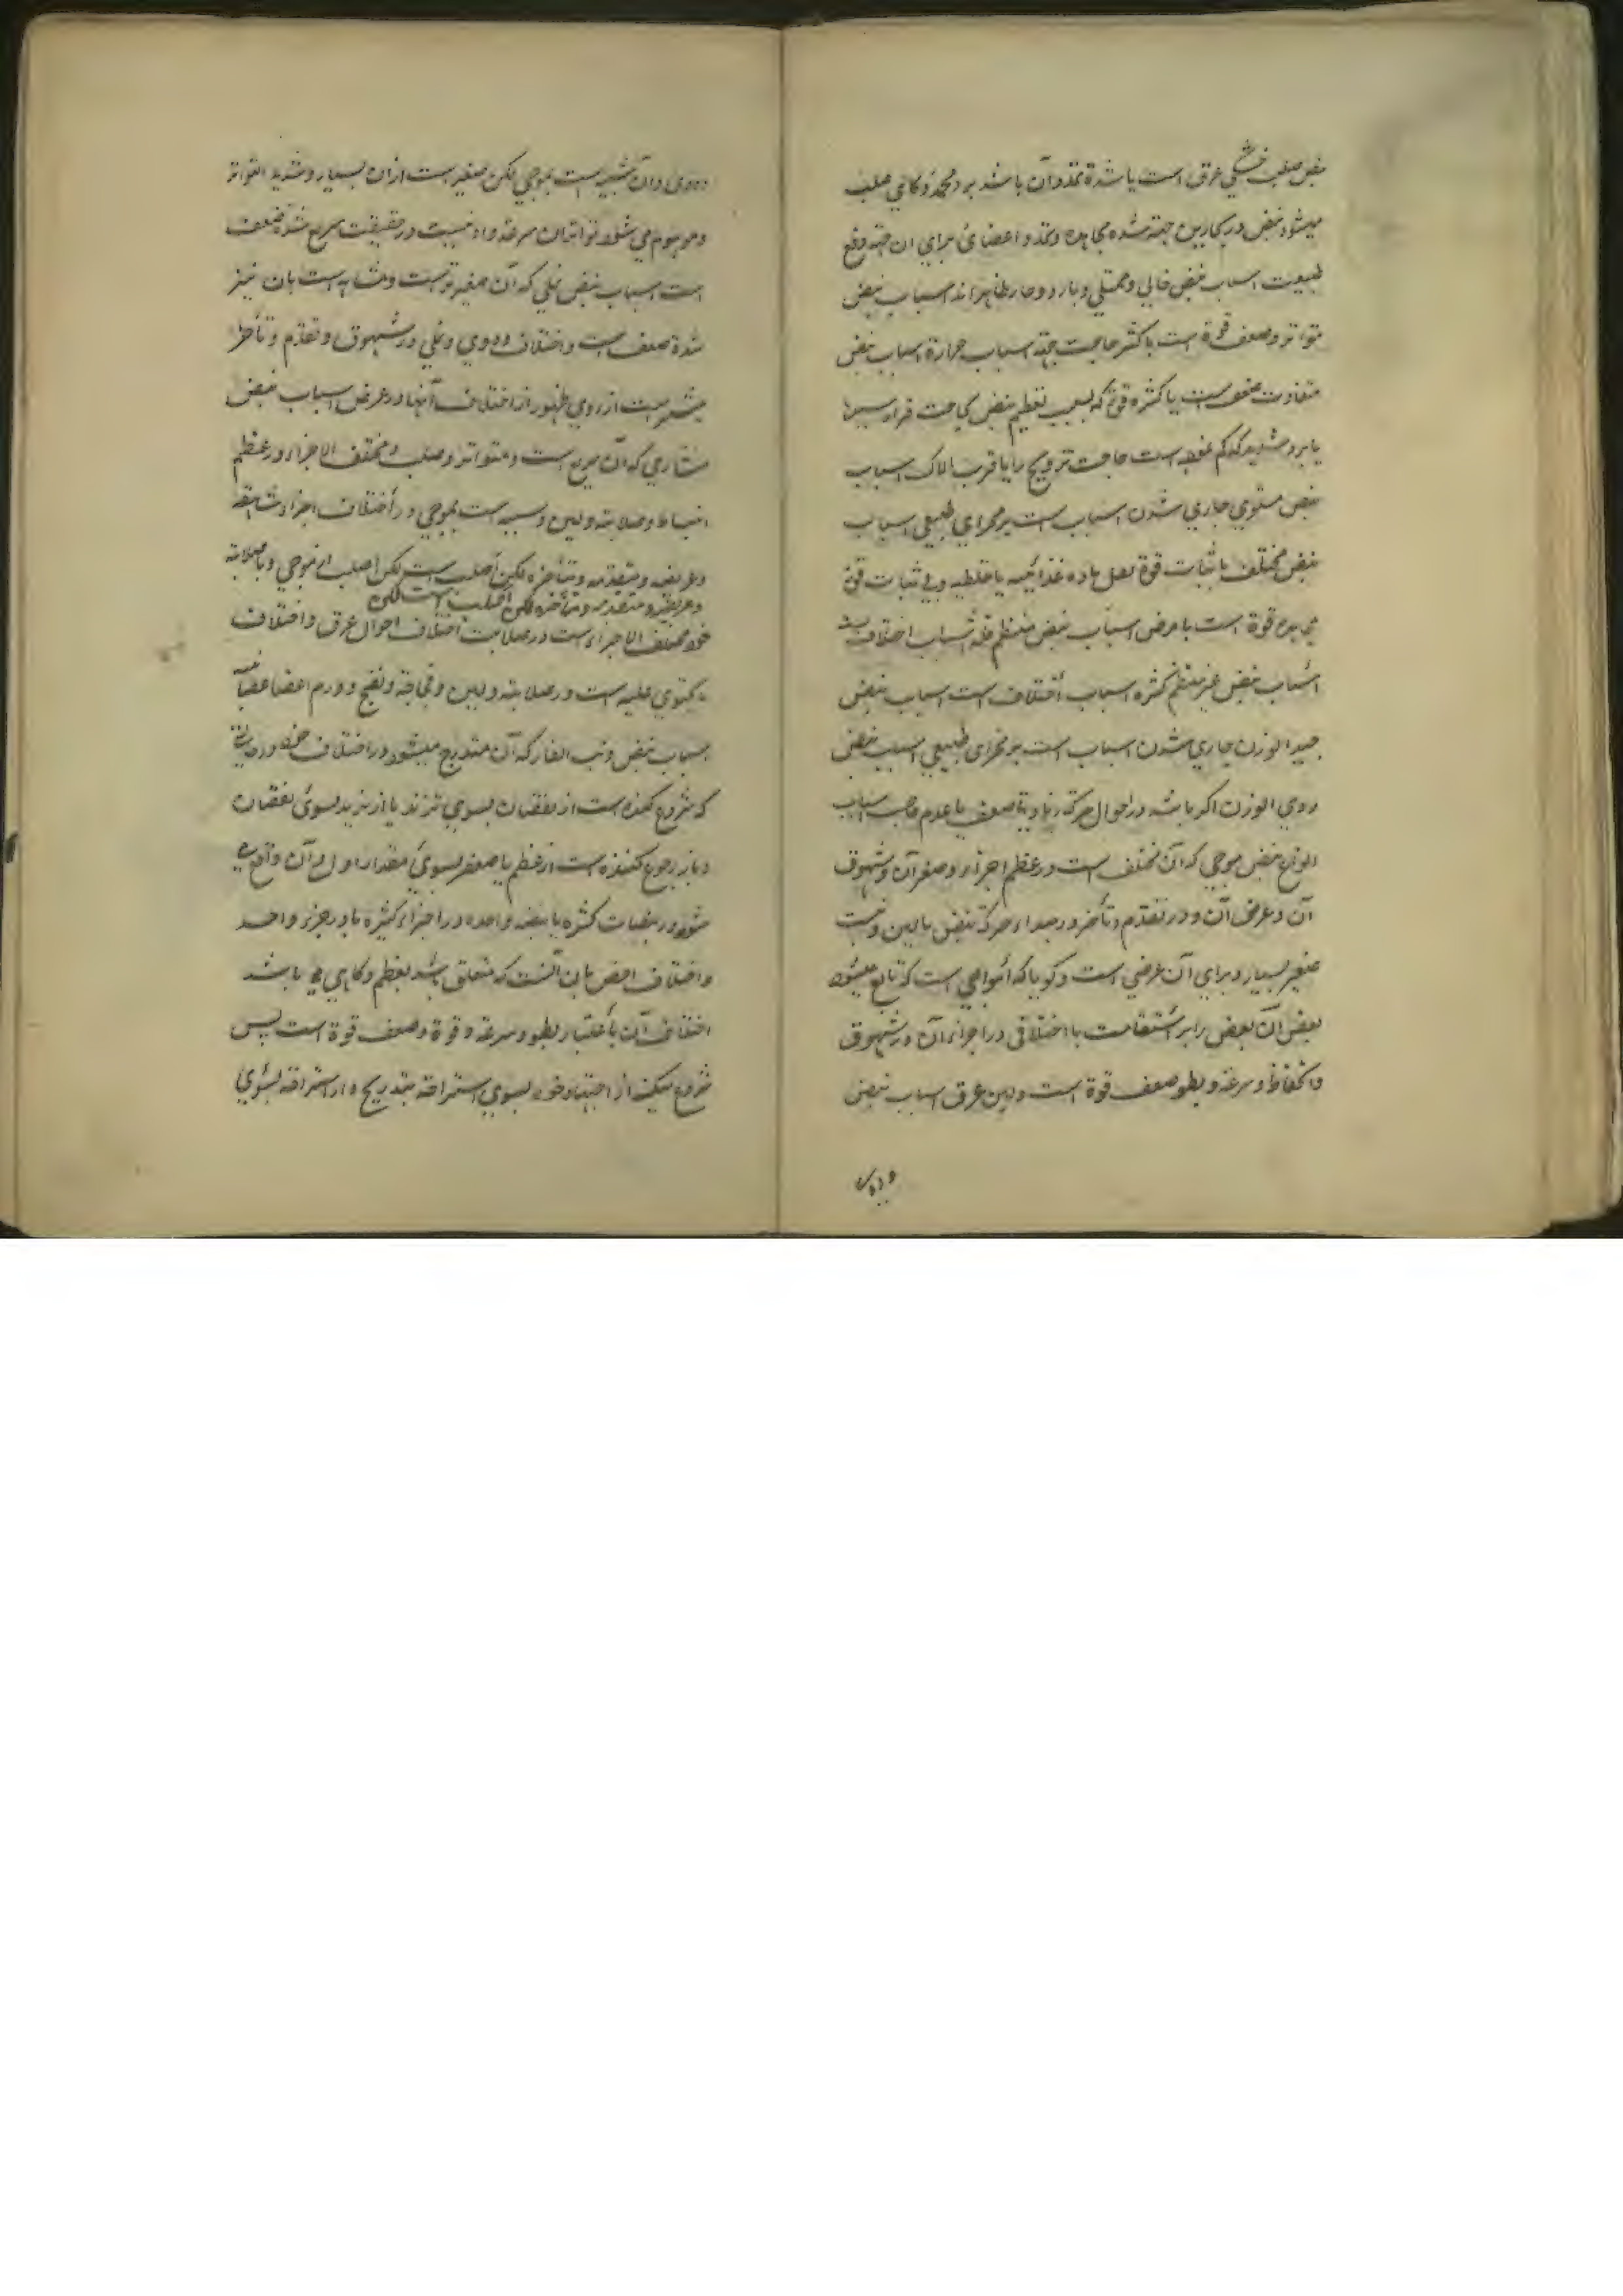 نبض صلب خشکی عرق است یا شدة تمدد آن باشد برد مجمد و گاهی صلب
میشود نبض در بحارین جهة شدة مجاهده و تمدد اعضائی برای ان جهة دفع
طبیعت اسباب نبض خالی و ممتلی و بارد و حار ظاهراند اسباب نبض
متواتر وضعف قوة است یا کثرة حاجت جهة اسباب حرارة اسباب نبض
متفاوت ضعف است یا کثرة قوتی که بسبب تعظیم نبض حاجت
یا برد شدید که کم نموده است حاجت ترویح را یا قرب هلاک اسباب
نبض مستوی جاری شدن اسباب است بر مجرای طبیعی اسباب
نبض مختلف با ثبات قوة ثقل ماده غذائیه یا خلطیه و بی ثبات قوة
مجاهده قوة است با مرض اسباب نبض منتظم قلة اسباب اختلاف
اسباب نبض غیر منتظم کثرة اسباب اختلاف است اسباب نبض
جید الوزن جاری شدن اسباب است بر مجرای طبیعی اسباب نبض
ردی الوزن اگر باشد در احوال حرکة زیادتی ضعف یا عدم حاجت اسباب
انواع نبض موجی که آن مختلف است در عظم اجزاء و صغر آن و شهوق
آن و عرض آن و در تقدم و تأخر در مبداء حرکة نبض با لین و نیست
صغیر بسیار و برای آن عرضی است و گویا که امواجی است که تابع میشود
بعض آن بعض را بر استقامت با اختلافی در اجزاء آن در شهوق
و انخفاض و سرعة و بطو ضعف قوة است و لین عرق اسباب نبض
دودی
دودی و آن شبیه است بموجی لکن صغیر است ازان بسیار و شدید التواتر
و موهوم می شود تواتر ان سرعة و او نیست در حقیقت سریع شدة ضعف
است اسباب نبض نملی که آن صغیر تر است و مشابه است بان نیز
شدة ضعف است و اختلاف دودی و نملی در شهوق و تقدم و تأخر
بیشتر است از روی ظهور از اختلاف آنها در عرض اسباب نبض
منشاری که آن سریع است و متواتر و صلب و مختلف الاجزاء در عظم
انبساط و صلابة و لین و شبیه است بموجی در اختلاف اجزاء شاهقه
و عریضه و متقدمه و متأخره لکن اصلب است لکن اصلب از موجی و با صلابة
و عریضه و متقدمه و متأخره لکن اصلب است لکن
خود مختلف الاجزاء است در صلابت اختلاف احوال عرق و اختلاف
محتوی علیه است در صلابة و لین و فجاجة و نضج و ورم اعضا عصبانیه
اسباب نبض ذنب الفار که آن متدرج میشود در اختلاف خود در حالتی
که شروع کننده است از نقصان بسوی تزید یا از تزید بسوی نقصان
و باز رجوع کننده است از عظم یا صغر بسوی مقدار اول آن و واقع می
شود در نبضات کثیره یا نبضه واحده در اجزاء کثیره یا در جزء واحد
و اختلاف اخص بان آنست که متعلق باشد بعظم و گاهی می باشد
اختلاف آن باعتبار بطو و سرعة و قوة و ضعف قوة است پس
شروع میکند از اجتهاد خود بسوی استراحة بتدریج و از استراحة بسوی